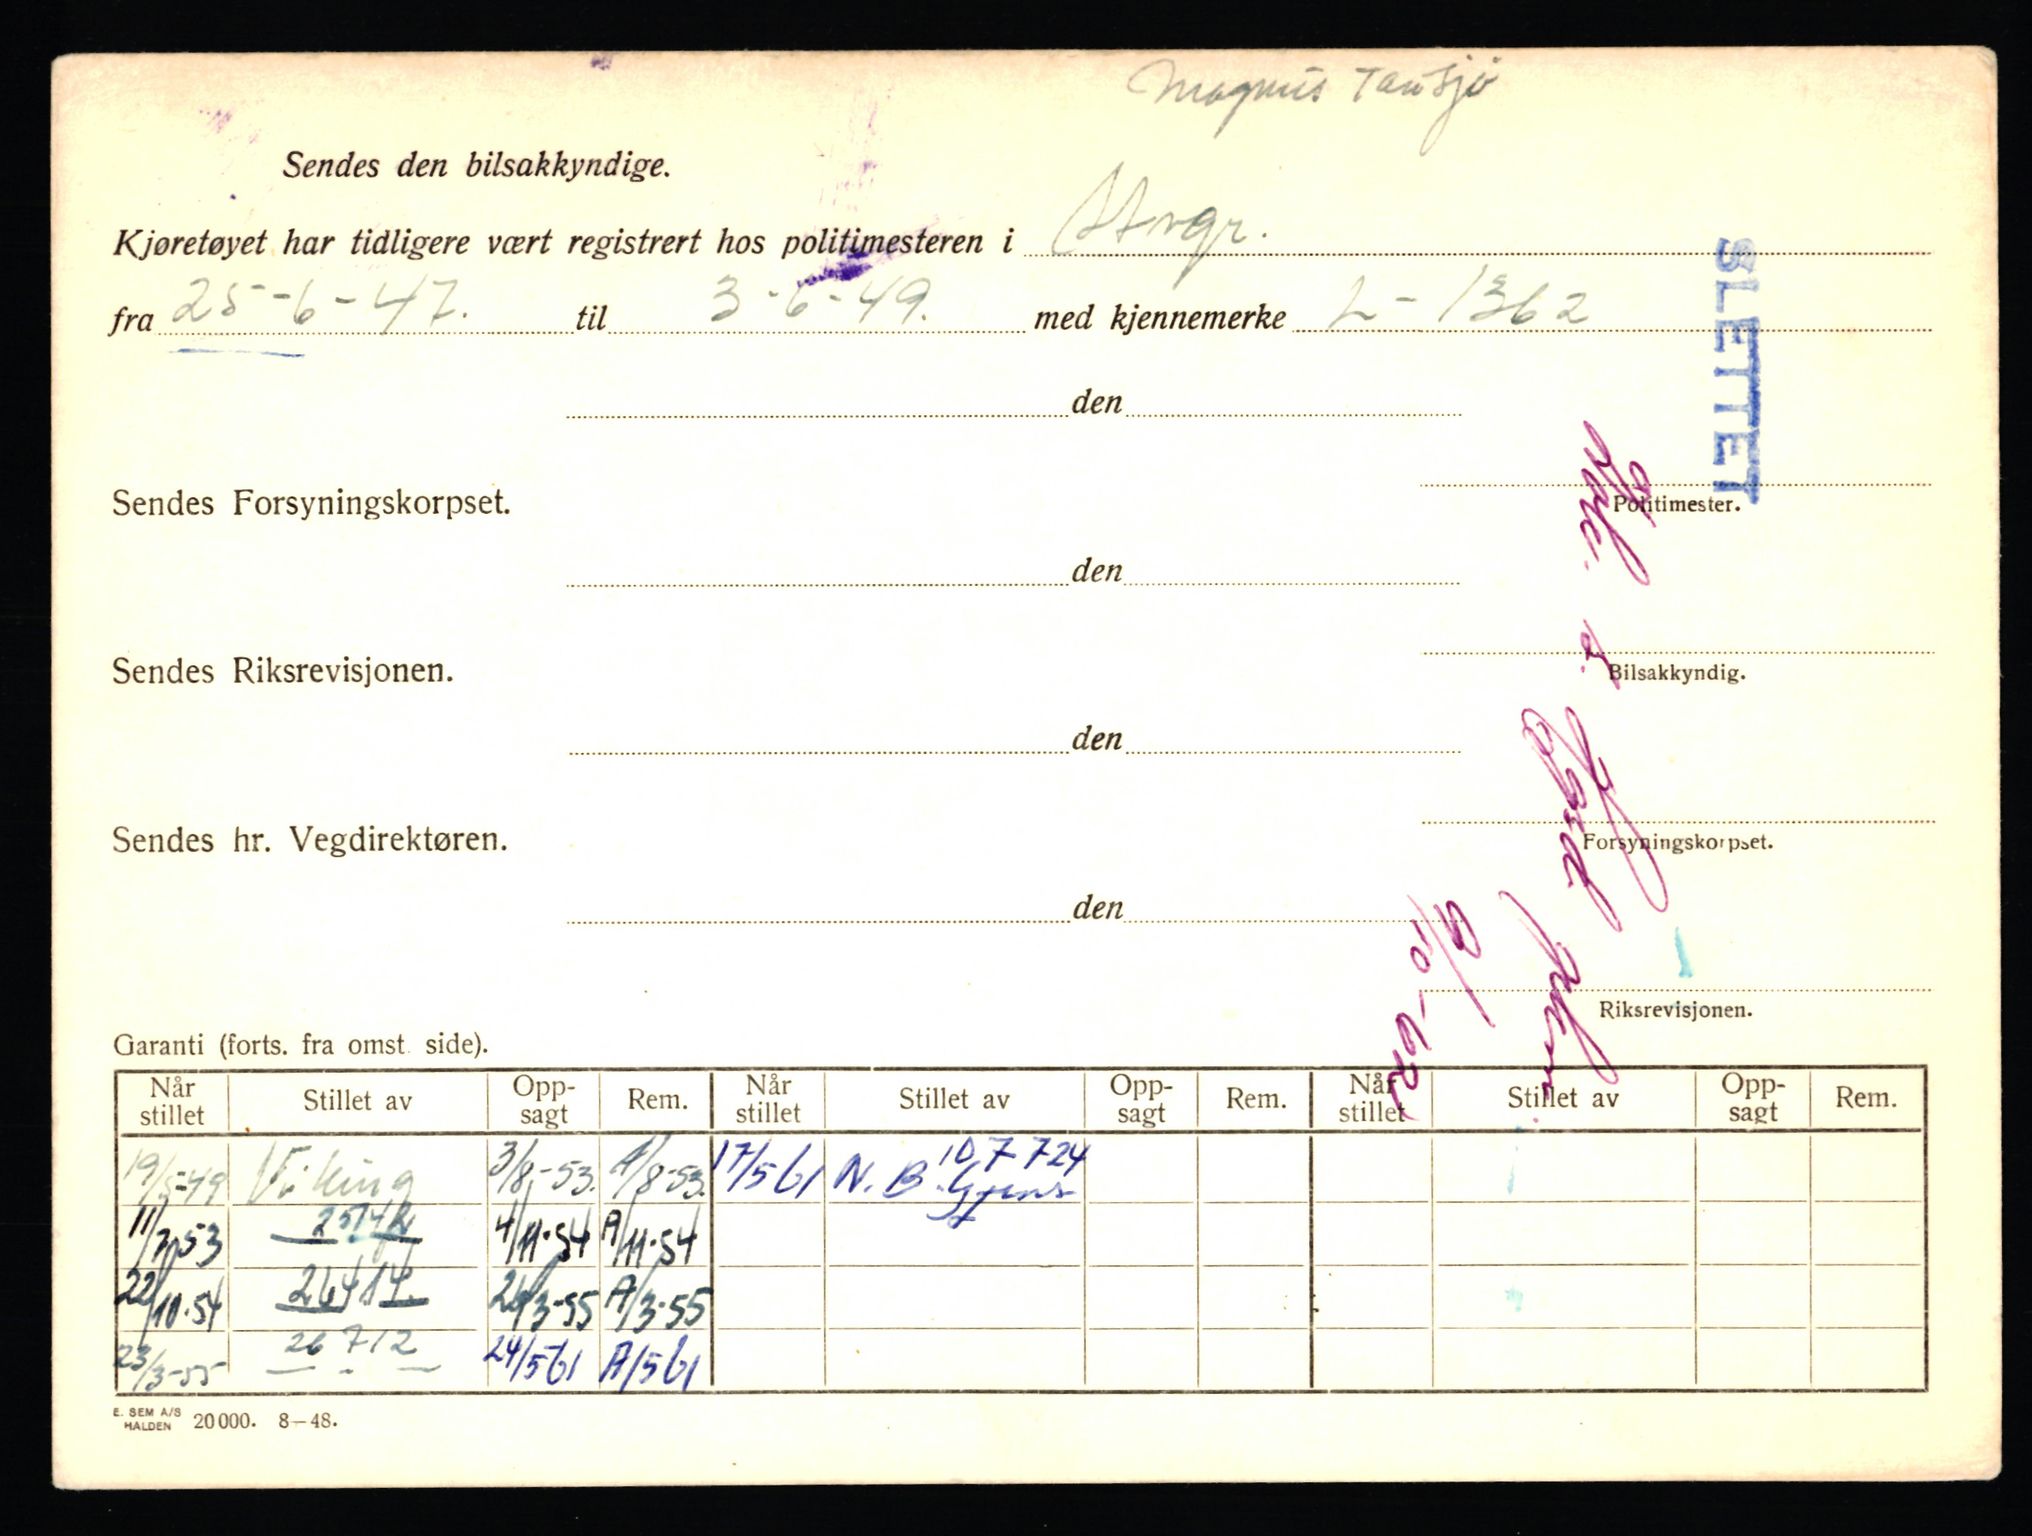 Magnus Tausjö
Sendes den bilsakkyndige.
Kjøretøyet har tidligere vært registrert hos politimesteren i Stvgr.
fra 25-6-47. til 3-6-49. med kjennemerke L-1362
SLETTET
den
Politimester.
Sendes Forsyningskorpset.
den
Bilsakkyndig.
Sendes Riksrevisjonen.
den
Forsyningskorpset.
Sendes hr. Vegdirektøren.
den
Riksrevisjonen.
Garanti (forts. fra omst. side).
Når stillet Stillet av Opp-sagt Rem. Når stillet Stillet av Opp-sagt Rem. Når stillet Stillet av Opp-sagt Rem.
19/5-49 Viking 3/8-53. A/8-53. 17/5 61 N.B. 107724
11/7 53 4/11·54 A/11·54
22/10·54 26414 A/3·55
23/3-55 26712 24/5 61 A/5 61
E. SEM A/S HALDEN 20000. 8-48.